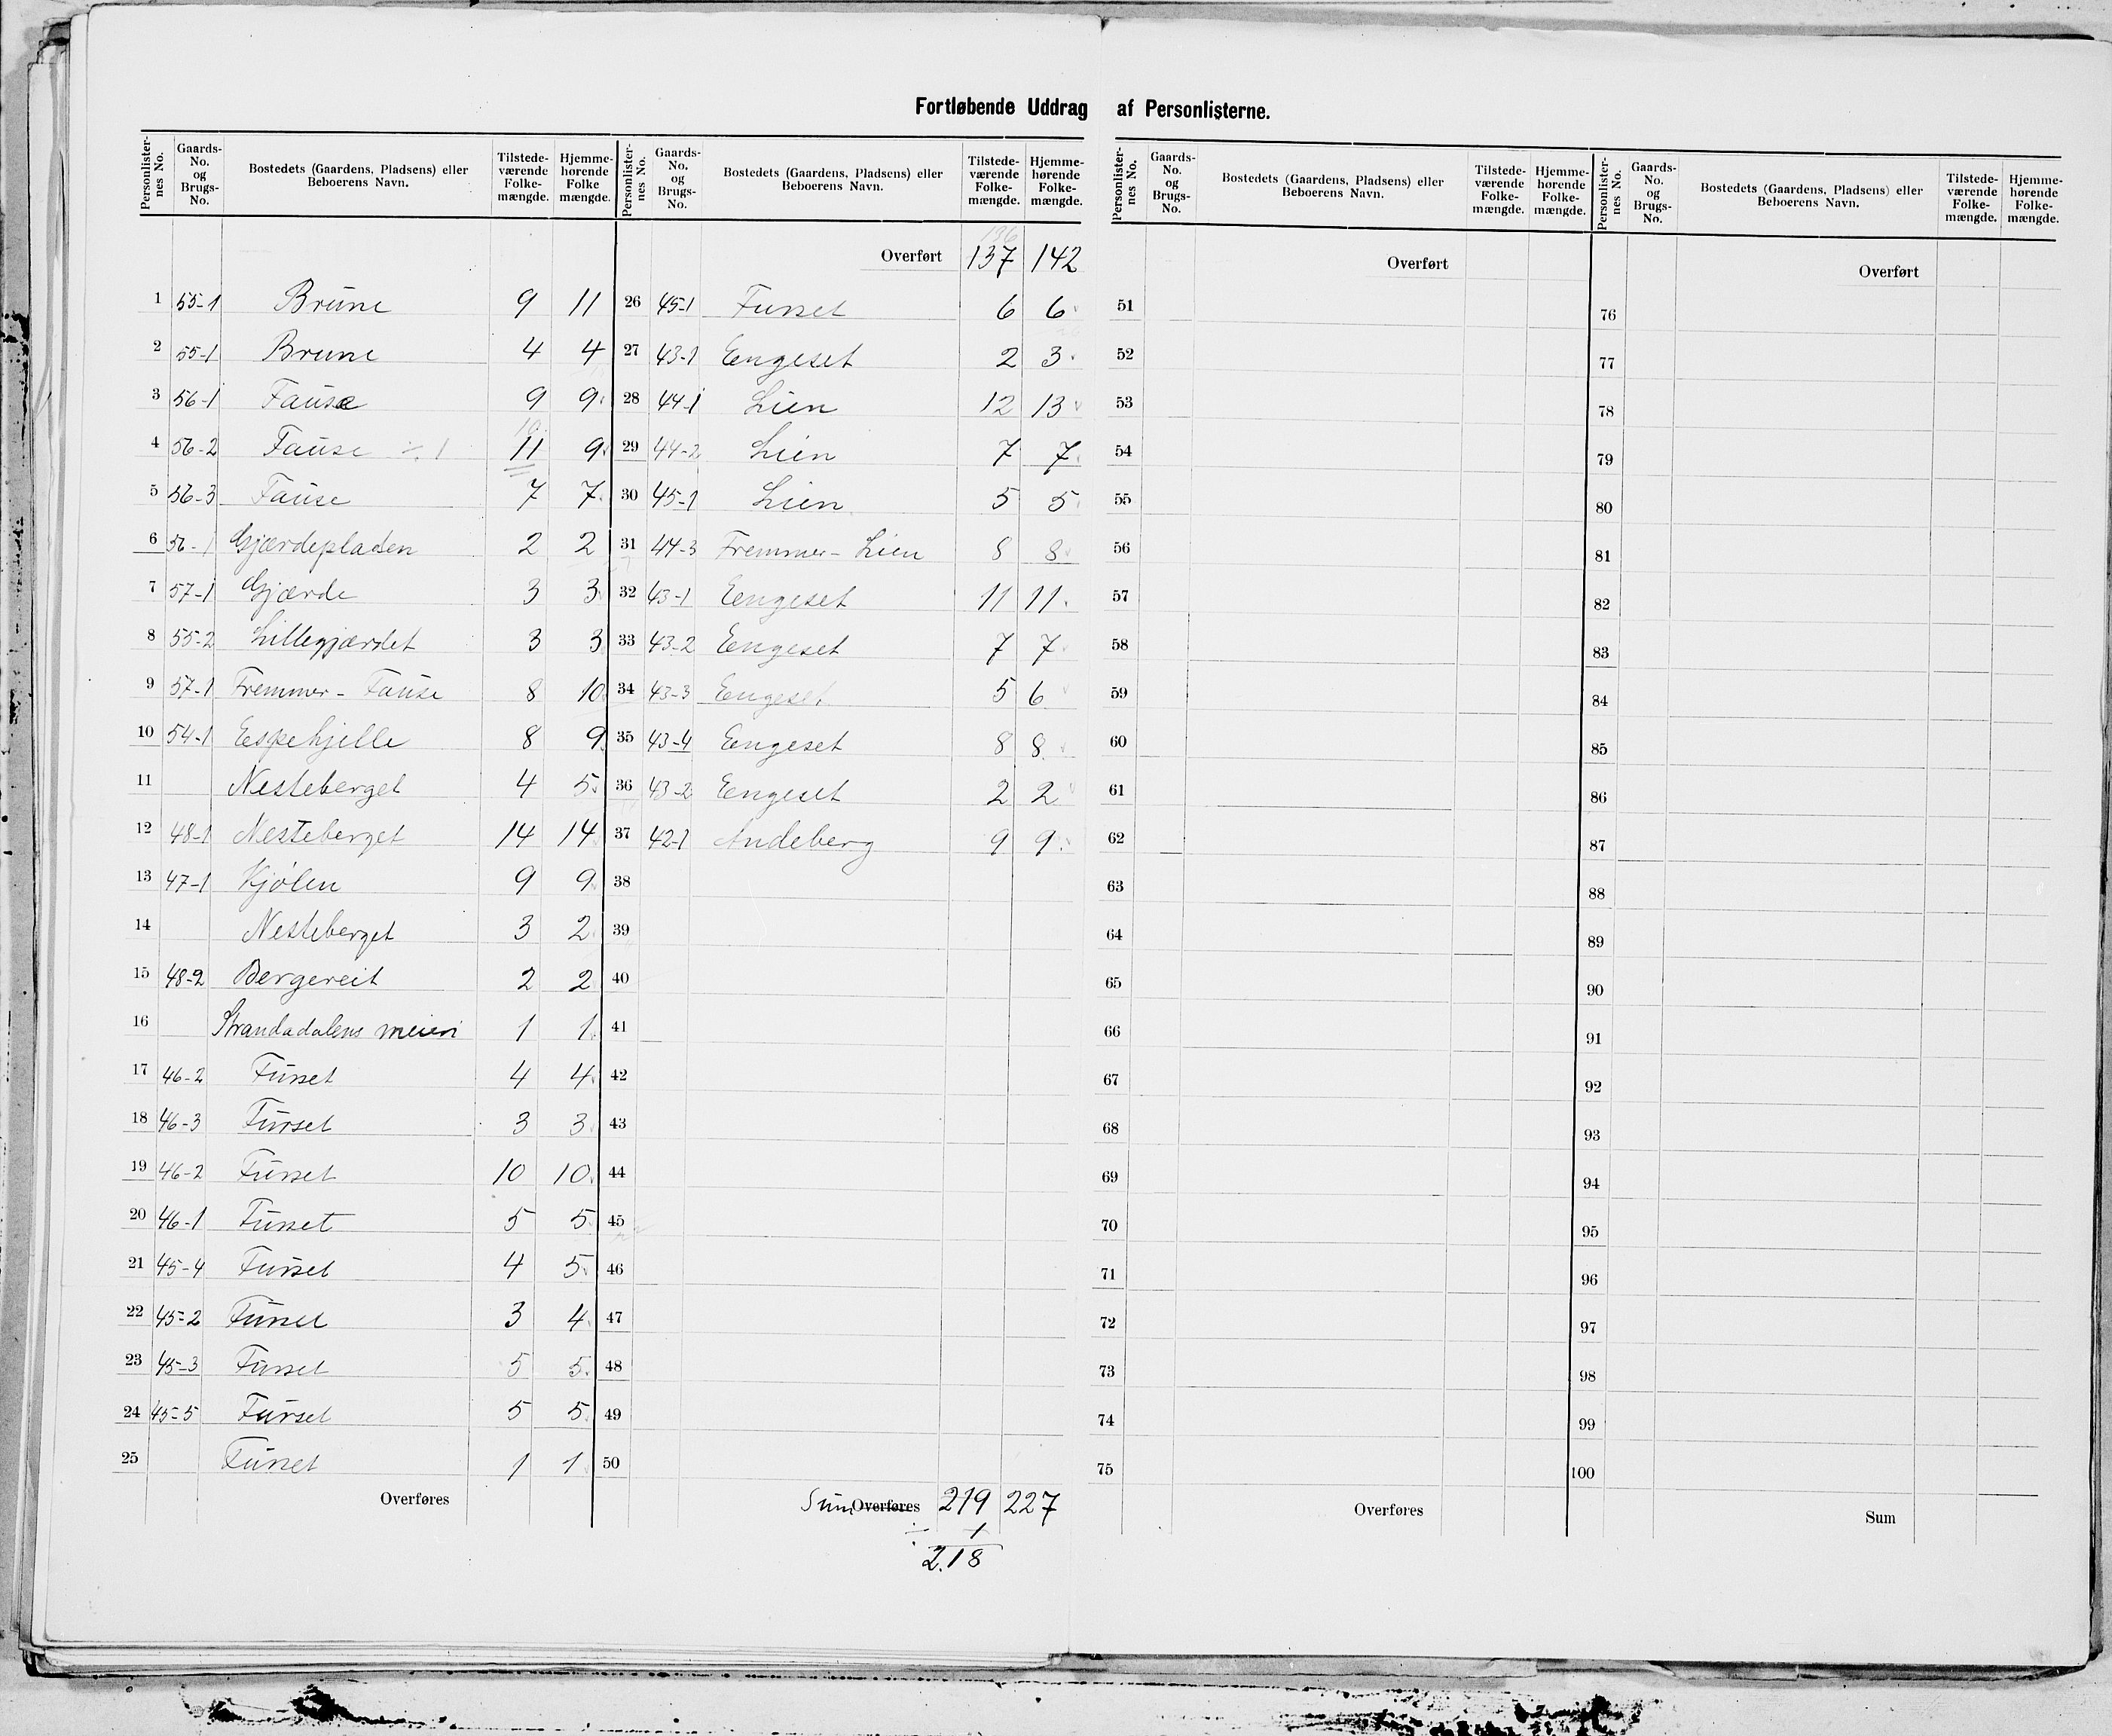 Fortløbende Uddrag af Personlisterne.
Personlister-nes No. Gaards-No. og Brugs-No. Bostedets (Gaardens, Pladsens) eller Beboerens Navn. Tilstede-værende Folke-mængde. Hjemme-hørende Folke mængde.
1 55-1 Brune 9 11
2 55-1 Brune 4 4
3 56-1 Fause 9 9
4 56-2 Fause ÷ 1 10 11 9
5 56-3 Fause 7 7
6 56-1 Gjærdepladsen 2 2
7 57-1 Gjærde 3 3
8 55-2 Lillegjærdet 3 3
9 57-1 Fremmer-Fause 8 10
10 54-1 Espehjelle 8 9
11 Nesteberget 4 5
12 48-1 Nesteberget 14 14
13 47-1 Kjølen 9 9
14 Nesteberget 3 2
15 48-2 Bergereit 2 2
16 Strandadalens meieri 1 1
17 46-2 Furset 4 4
18 46-3 Furset 3 3
19 46-2 Furset 10 10
20 46-1 Furset 5 5
21 45-4 Furset 4 5
22 45-2 Furset 3 4
23 45-3 Furset 5 5
24 45-5 Furset 5 5
25 Furset 1 1
Overføres
Personlister-nes No. Gaards-No. og Brugs-No. Bostedets (Gaardens, Pladsens) eller Beboerens Navn. Tilstede-værende Folke-mængde. Hjemme-hørende Folke-mængde.
136
Overført 137 142
26 45-1 Furset 6 6
27 43-1 Eengeset 2 3
28 44-1 Lien 12 13
29 44-2 Lien 7 7
30 45-1 Lien 5 5
31 44-3 Fremmer-Lien 8 8
32 43-1 Eengeset 11 11
33 43-2 Eengeset 7 7
34 43-3 Eengeset 5 6
35 43-4 Eengeset 8 8
36 43-2 Eengeset 2 2
37 42-1 Andeberg 9 9
38
39
40
41
42
43
44
45
46
47
48
49
50
Sum Overføres 219 227
÷ 1
218
Personlister-nes No. Gaards-No. og Brugs-No. Bostedets (Gaardens, Pladsens) eller Beboerens Navn. Tilstede-værende Folke-mængde. Hjemme-hørende Folke-mængde.
Overført
51
52
53
54
55
56
57
58
59
60
61
62
63
64
65
66
67
68
69
70
71
72
73
74
75
Overføres
Personlister-nes No. Gaards-No. og Brugs-No. Bostedets (Gaardens, Pladsens) eller Beboerens Navn. Tilstede-værende Folke-mængde. Hjemme-hørende Folke-mængde.
Overført
76
77
78
79
80
81
82
83
84
85
86
87
88
89
90
91
92
93
94
95
96
97
98
99
100
Sum